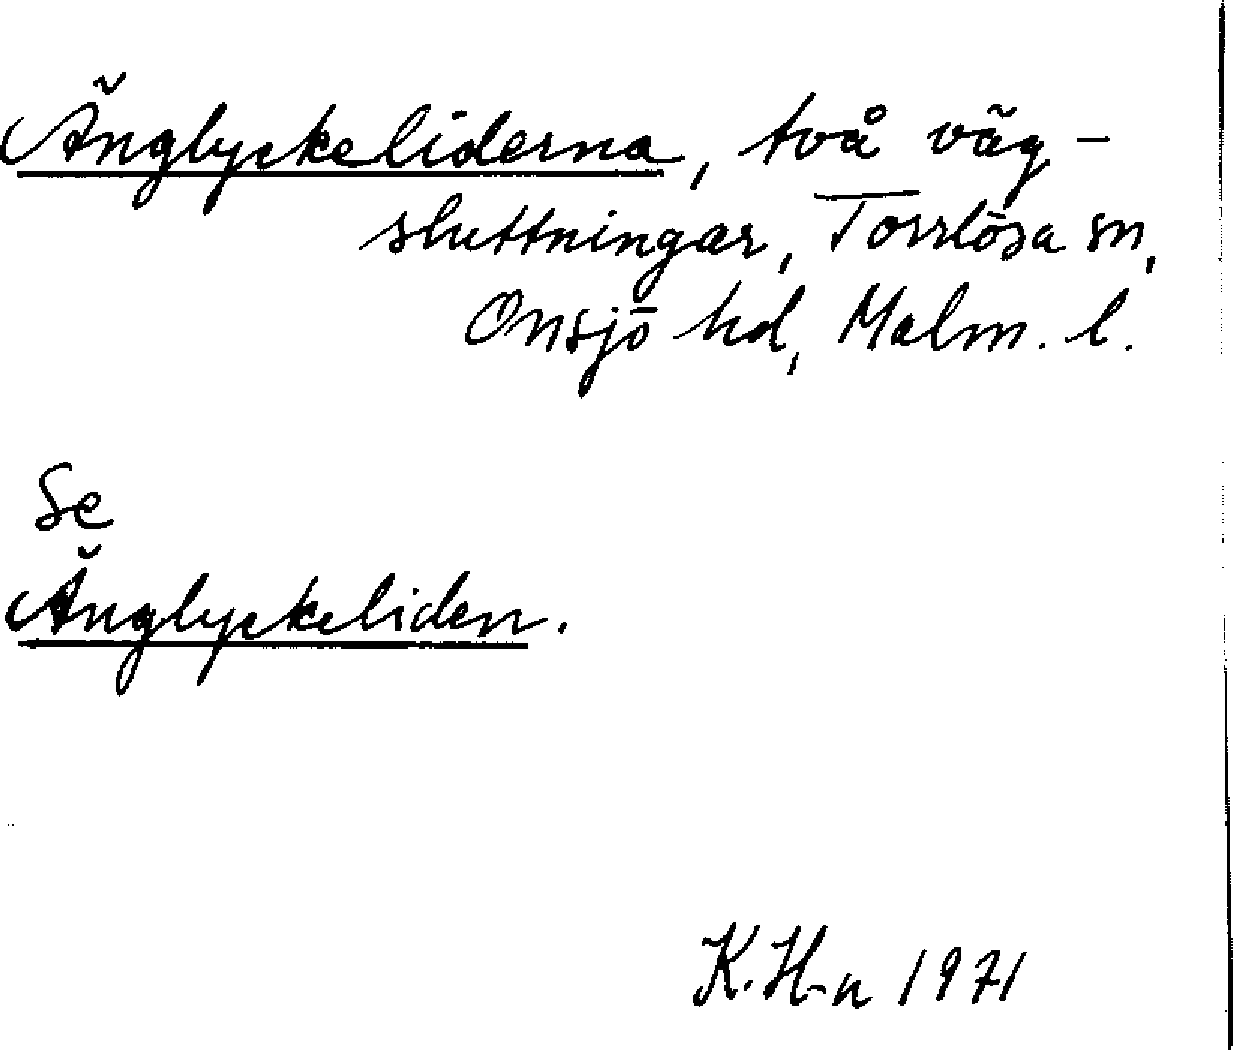 Änglyckeliderna, två väg-
sluttningar, Torrlösa sn,
Onsjö hd, Malm. l.
Se
Änglyckeliden.
K. H-n 1971